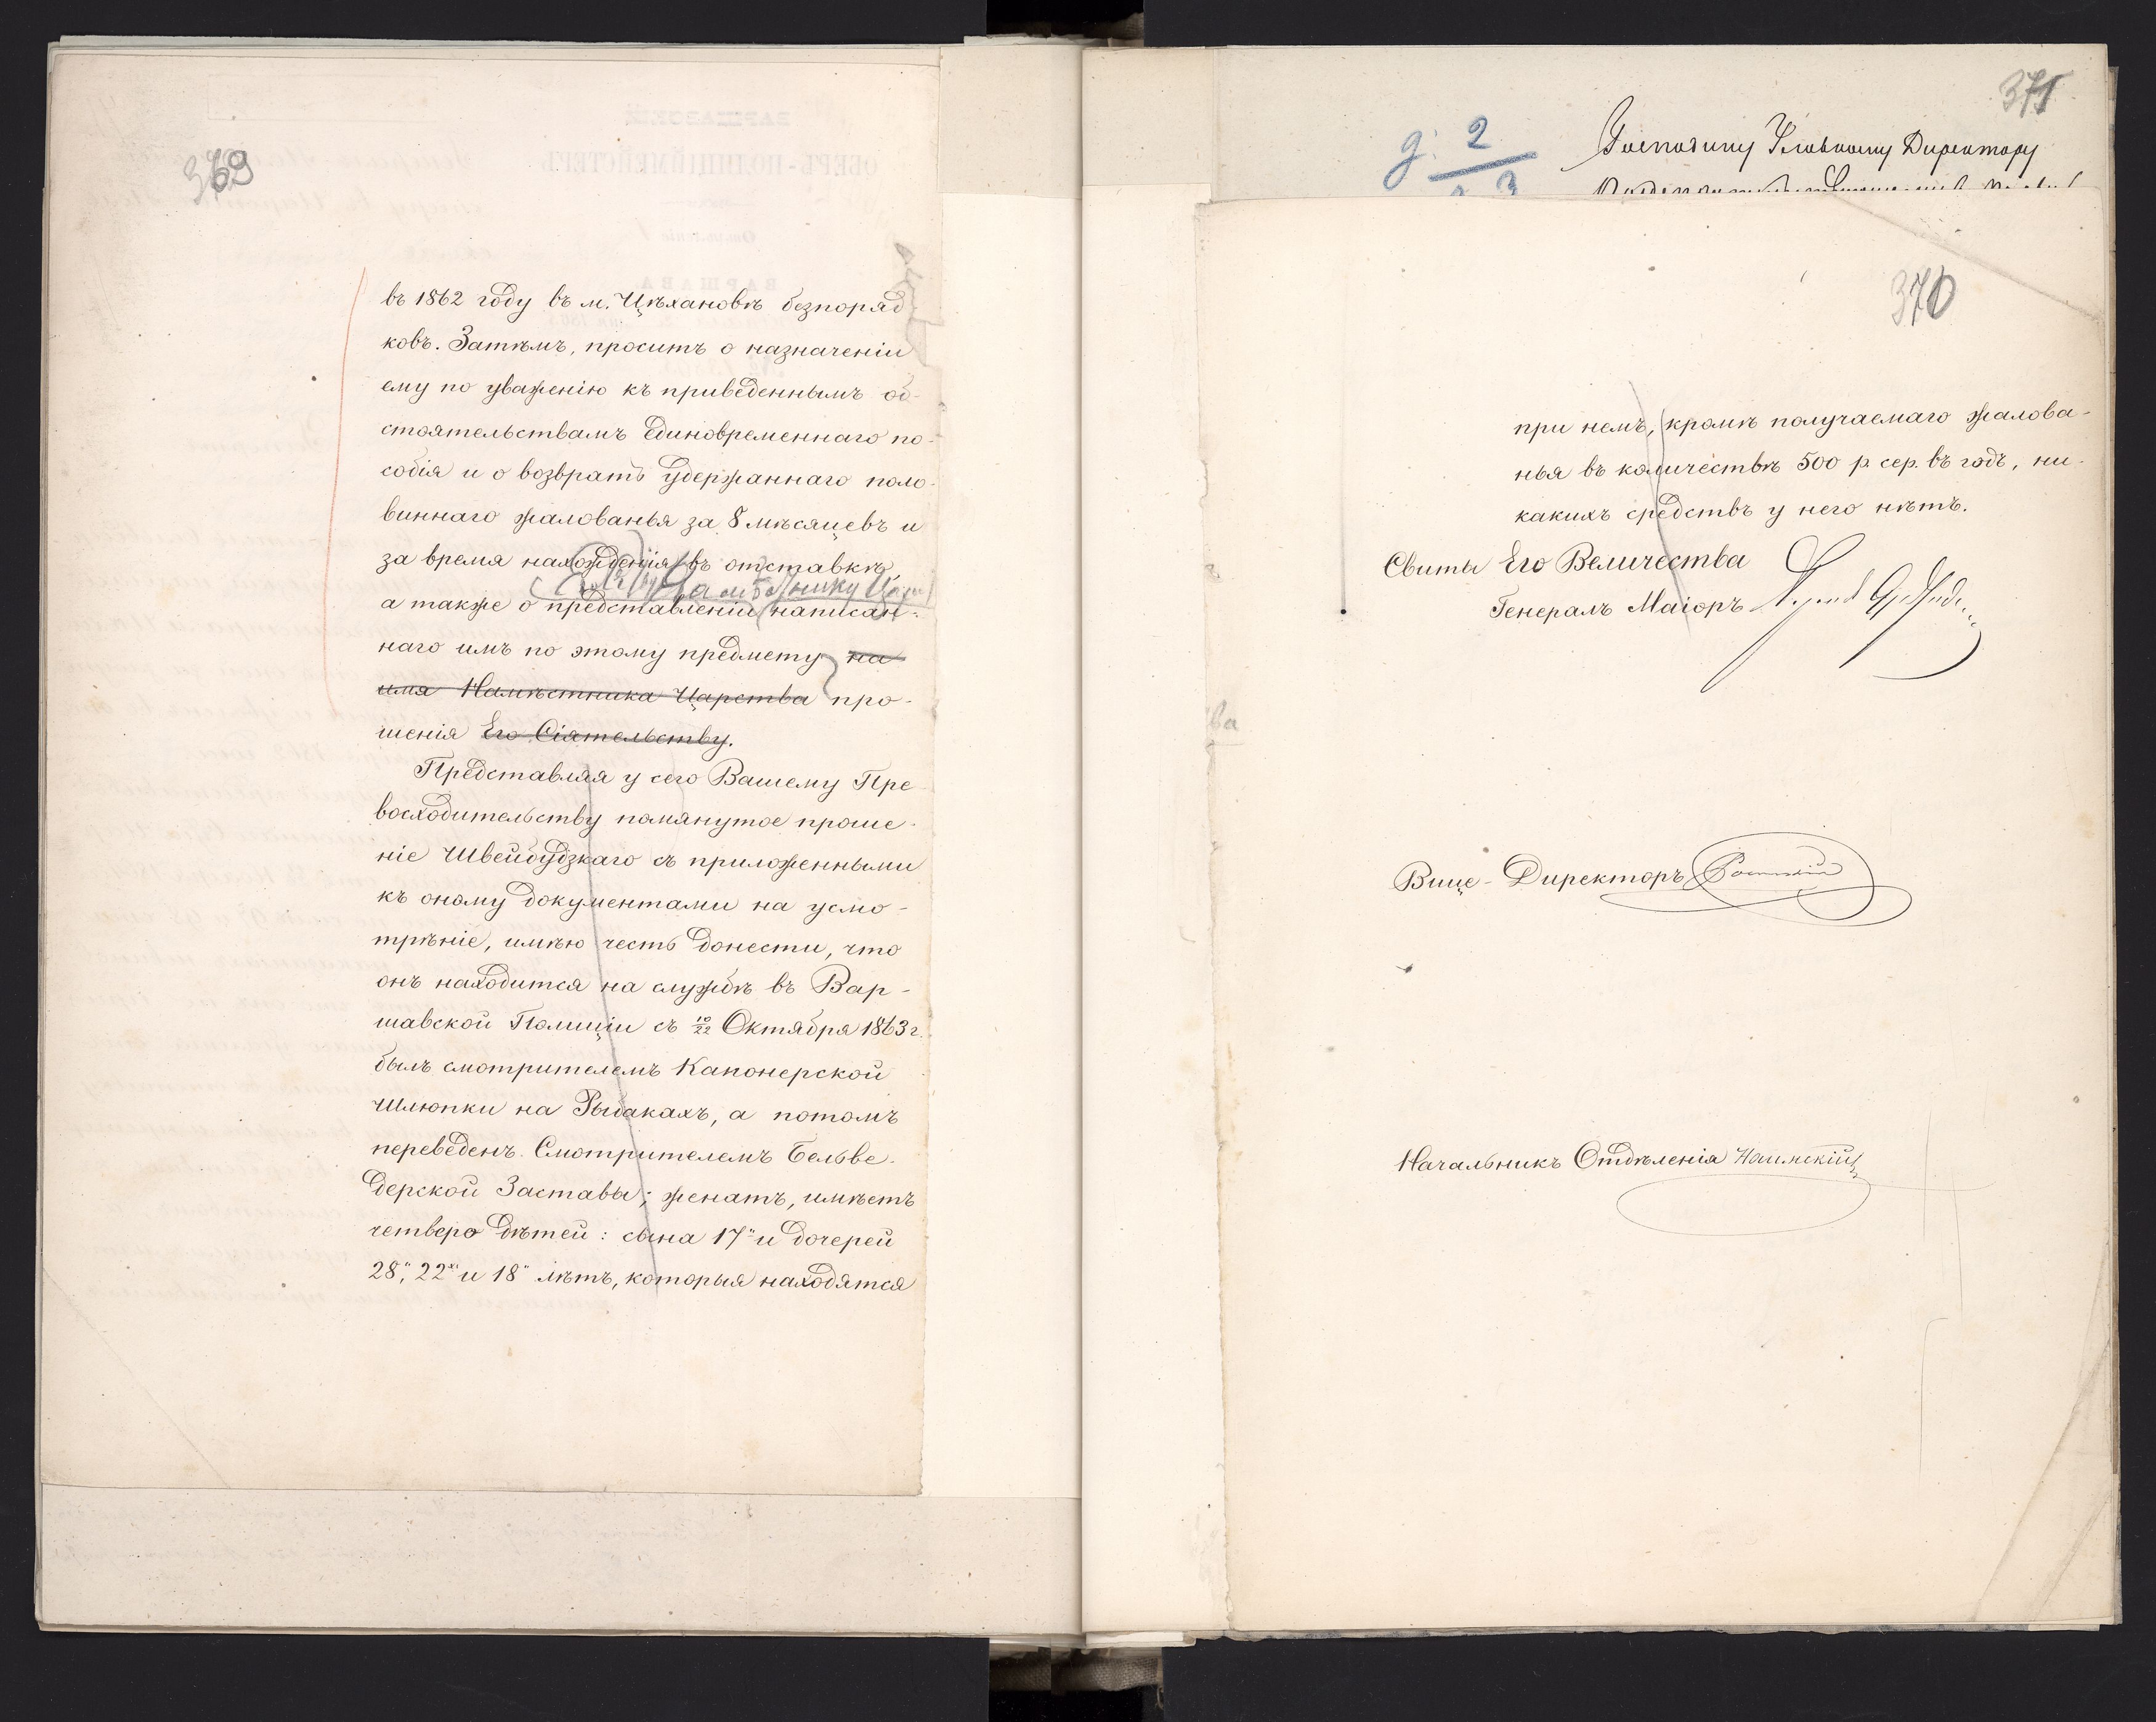 369
въ 1862 году въ м. Цѣхановѣ безпоряд
ковъ. Затѣмъ, проситъ о назначеніи
ему по уваженію къ приведеннымъ об-
стоятельствамъ единовременнаго по-
собія и о возвратѣ удержаннаго поло-
виннаго жалованья за 8 мѣсяцевъ и
за время нахожденія въ отставкѣ,
Намѣстнику
а также о представленіи написан-
наго имъ по этому предмету на
имя Намѣстника Царства про-
шенія Его Сіятельству.
Представляя у сего Вашему Пре
восходительству помянутое проше-
ніе Швейбудзкаго съ приложенными
къ оному документами на усмо-
трѣніе, имѣю честь донести, что
онъ находится на службѣ въ Вар-
шавской Полиціи съ 10/22 Октября 1863 г.
былъ смотрителемъ Капонерской
Шлюпки на Рыбакахъ, а потомъ
переведенъ Смотрителемъ Бельве-
дерской Заставы; женатъ, имѣетъ
четверо дѣтей: сына 17" и дочерей
28", 22" и 18" лѣтъ, которыя находятся
371
д. 2
3
Господину Главному Директору
370
при немъ, кромѣ получаемаго жалова-
нья въ количествѣ 500 р. сер. въ годъ, ни-
какихъ средствъ у него нѣтъ.
Свиты Его Величества
Генералъ Маіоръ
ва
Вице-Директоръ
Начальникъ Отдѣленія